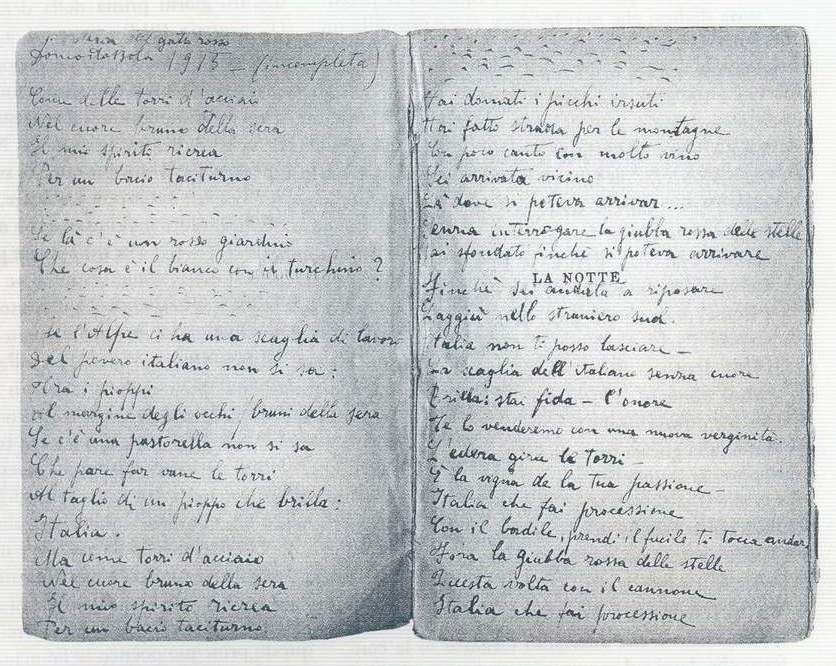 del gatto rosso
Domodossola 1915 – (incompleta)
Come delle torri d'acciaio
Nel cuore bruno della sera
Il mio spirito ricrea
Per un bacio taciturno
Se là c'è un rosso giardino
Che cosa è il bianco con il turchino?
Se l'Alpe ci ha una scaglia di lavoro
Del povero italiano non si sa:
Tra i pioppi
il margine degli occhi bruni della sera
Se c'è una pastorella non si sa
Che pare far vane le torri
Al taglio di un pioppo che brilla:
Italia.
Ma come torri d'acciaio
Nel cuore bruno della sera
Il mio spirito ricrea
Per un bacio taciturno.
Hai domati i picchi irsuti
Hai fatto strada per le montagne
Con poco canto con molto vino
Sei arrivata vicino
Là dove si poteva arrivar...
Senza interrogare la giubba rossa delle stelle
Hai sfondato finchè si poteva arrivare
LA NOTTE
Finchè sei andata a riposare
Laggiù nello straniero sud.
Italia non ti posso lasciare –
La scaglia dell'Italiano senza cuore
Brilla: stai fida – l'onore
Te lo venderemo con una nuova verginità.
L'edera gira le torri –
È la vigna de la tua passione –
Italia che fai processione
Con il badile, prendi il fucile ti tocca andar
Fora la giubba rossa delle stelle
Questa volta con il cannone
Italia che fai processione